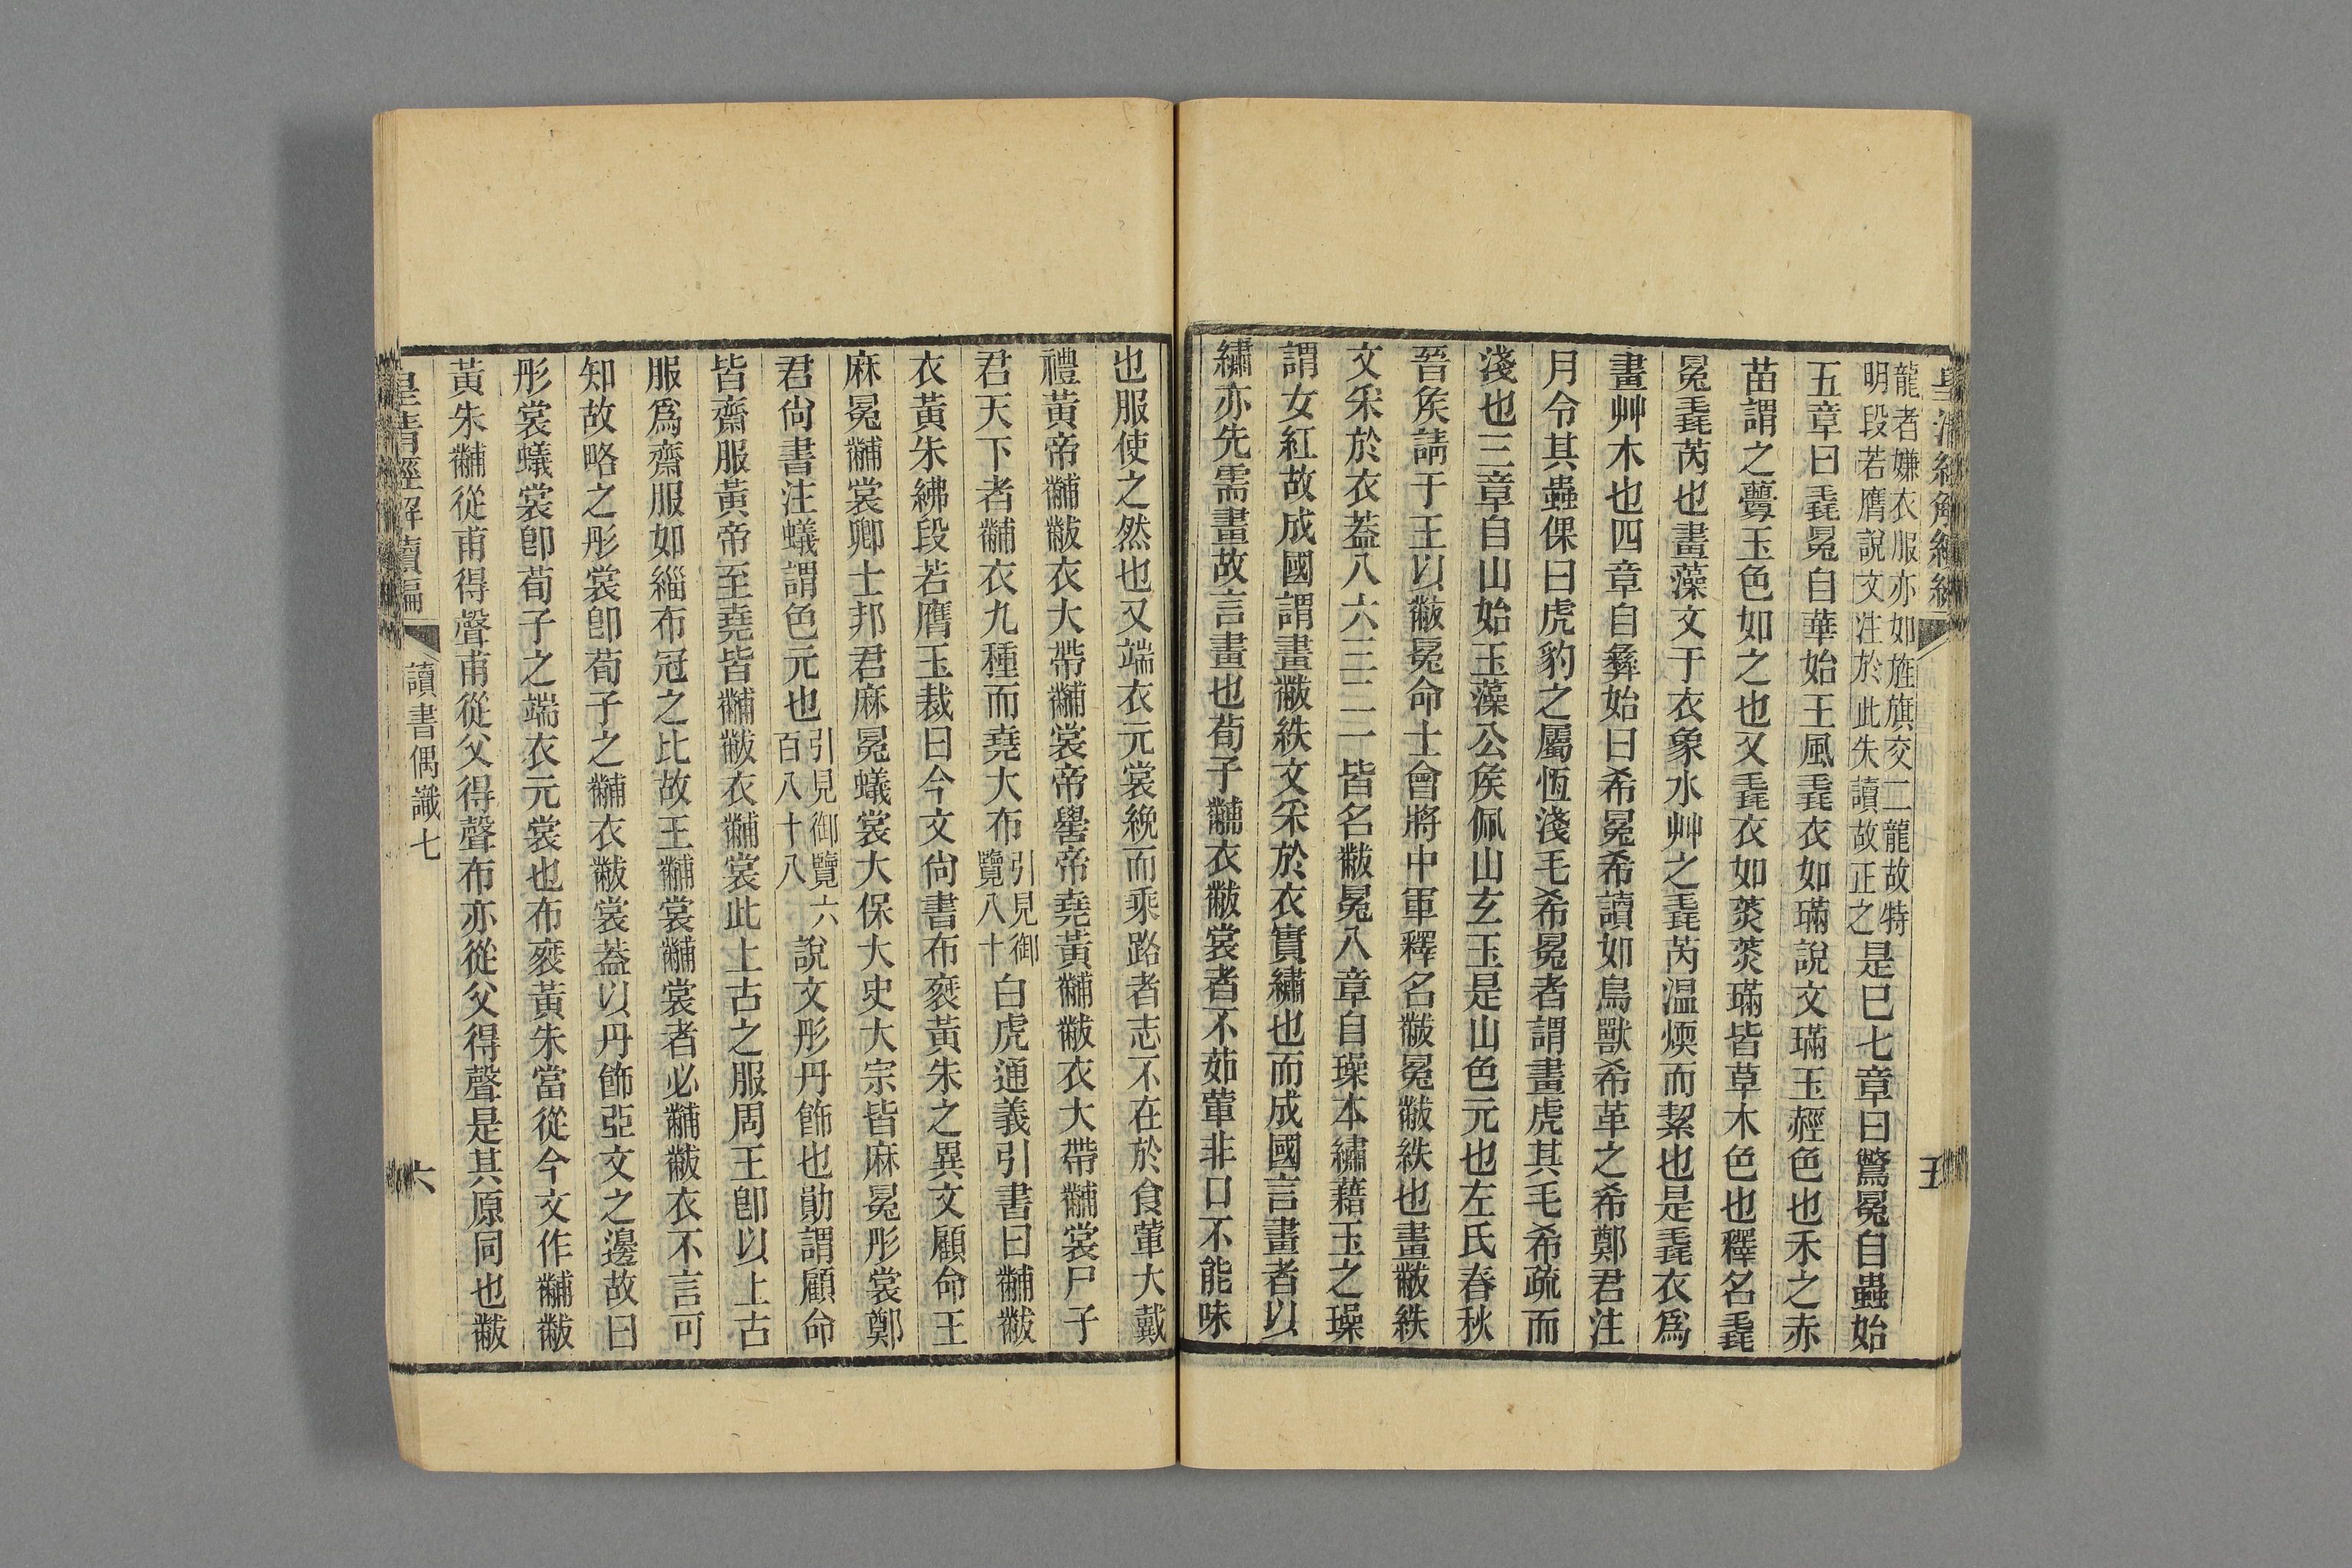 皇清經解續編
五
龍者嫌衣服亦如旌旗交二龍故特
明段若膺說文注於此失讀故正之
是巳七章曰鷩冕自蟲始
五章曰毳冕自華始王風毳衣如璊說文璊玉䞓色也禾之赤
苗謂之虋玉色如之也又毳衣如菼菼璊皆草木色也釋名毳
冕毳芮也畫藻文于衣象水艸之毳芮温煗而絜也是毳衣爲
畫艸木也四章自彝始曰希冕希讀如鳥獸希革之希鄭君注
月令其蟲倮曰虎豹之屬恆淺毛希冕者謂畫虎其毛希疏而
淺也三章自山始玉藻公矦佩山玄玉是山色元也左氏春秋
晉矦請于王以黻冕命士會將中軍釋名黻冕黻紩也畫黻紩
文采於衣葢八六三二一皆名黻冕八章自璪本繡藉玉之璪
謂女紅故成國謂畫黻紩文采於衣實繡也而成國言畫者以
繡亦先需畫故言畫也荀子黼衣黻裳者不茹葷非口不能味
也服使之然也又端衣元裳絻而乘路者志不在於食葷大戴
禮黃帝黼黻衣大帶黼裳帝嚳帝堯黃黼黻衣大帶黼裳尸子
君天下者黼衣九種而堯大布
引見御
覽八十
白虎通義引書曰黼黻
衣黃朱紼段若膺玉裁曰今文尙書布䅂黃朱之異文顧命王
麻冕黼裳卿士邦君麻冕蟻裳大保大史大宗皆麻冕彤裳鄭
君尙書注蟻謂色元也
引見御覽六
百八十八
說文彤丹飾也勛謂顧命
皆齋服黃帝至堯皆黼黻衣黼裳此上古之服周王卽以上古
服爲齋服如緇布冠之比故王黼裳黼裳者必黼黻衣不言可
知故略之彤裳卽荀子之黼衣黻裳葢以丹飾亞文之邊故曰
彤裳蟻裳卽荀子之端衣元裳也布䅂黃朱當從今文作黼黻
黃朱黼從甫得聲甫從父得聲布亦從父得聲是其原同也黻
皇淸經解續編
讀書偶識七
六